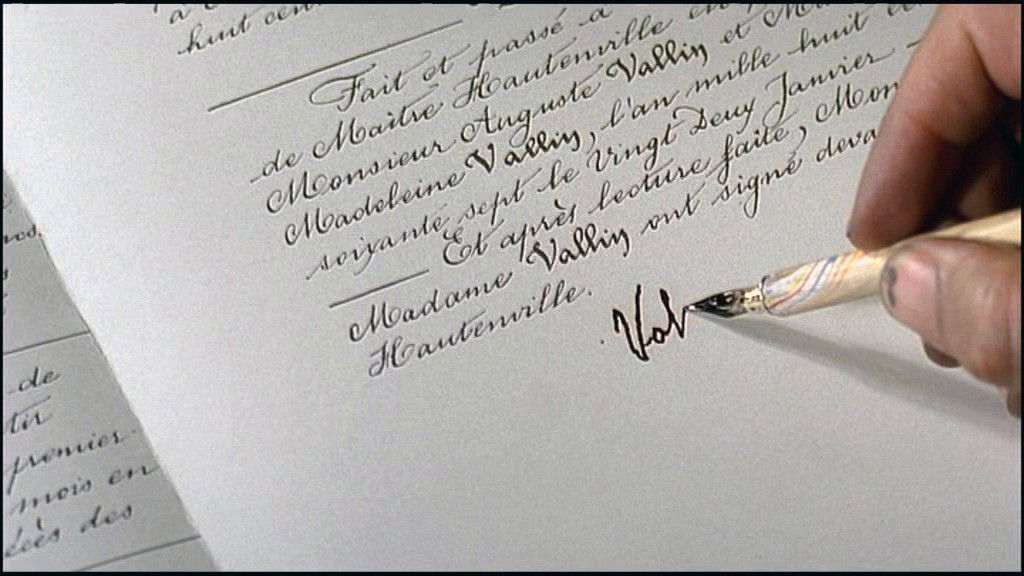 à C
huit cen
Fait et passé a
de Maître Hautenville en
Monsieur Auguste Vallin et M
Madeleine Vallin, l'an mille huit
soixante sept le Vingt Deux Janvier
Et après lecture faite, Mon
Madame Vallin ont signé deva
Hautenville.
Val
de
tir
premier
mois en
des